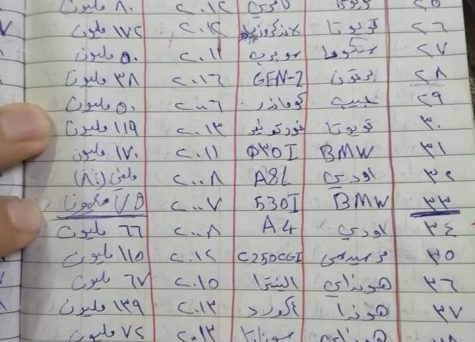 ٨٠ مليون
٢٦ تويوتا ٢٠١٢ ١٧٢ مليون
٢٧ سوبرب ٢٠١١ ٥٠ مليون
٢٨ بروتون GEN-2 ٢٠١٦ ٣٨ مليون
٢٩ جيب كوماندر ٢٠٠٦ ٥٠ مليون
٣٠ تويوتا فورتونر ٢٠١٣ ١١٩ مليون
٣١ BMW 530I ٢٠١١ ١٧٠ مليون
٣٢ اودي A8L ٢٠٠٨ (٨٠)
٣٣ BMW 530I ٢٠٠٧ مليون
٣٤ اودي A4 ٢٠٠٨ ٦٦ مليون
٣٥ مرسيدس C250CGI ٢٠١٢ ١١٥ مليون
٣٦ هونداي النترا ٢٠١٥ ٦٧ مليون
٣٧ هوندا اكورد ٢٠١٣ ١٣٩ مليون
هونداي سوناتا ٢٠١٣ مليون